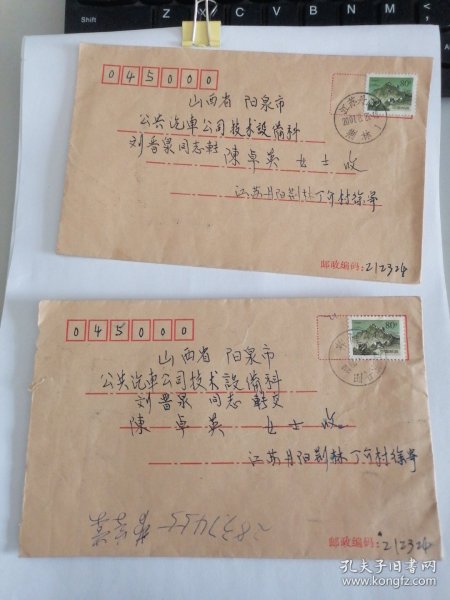 Shift
Z
X
C
V
B
N
M
045000
80分
山西省 阳泉市
公共汽車公司技术設備科
刘晋泉同志转
陳卓英 女士 收
江苏丹阳荆林丁介村徐寄
邮政编码：212324
045000
80分
山西省 阳泉市
公共汽車公司技术設備科
刘晋泉 同志 转交
陳卓英 女士 收
江苏丹阳荆林丁介村徐寄
邮政编码：212324
孔夫子旧书网
www.kongfz.com